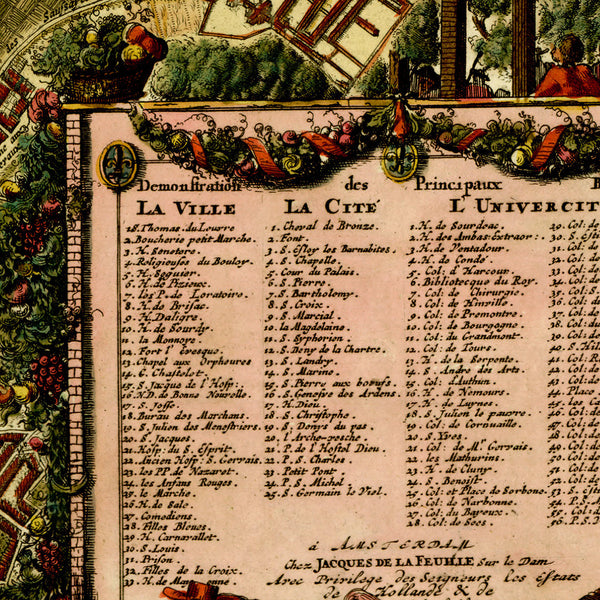 Demonstration des Principaux B
LA VILLE
1.S. Thomas du Louvre
2. Boucherie petit Marche.
3. H. Senetere
4. Religieuse du Bouloy
5. H. Seguier
6. H. de Pizieux
7. les P. de Loratoire
8. H. de Brisac
9. H. Daligre
10. H. de Sourdy
11. la Monnoye
12. Fort l'evesque
13. Chapel aux Orpheures
14. C. Chastelet
15. S. Jacque de l'Hosp:
16. N.D. de Bonne Nouvelle
17. S. Josse
18. Bureau des Marchans
19. S. Julien des Menestriers
20. S. Jacques
21. Hosp: du S. Esprit
22. Ancien Hosp: S. Gervais
23. les P.P. de Nazaret
24. les Anfans Rouges
25. le Marche
26. H. de Sale
27. Comediens
28. Filles Bleues
29. H. Carnavallet
30. S. Louis
31. Prison
32. Filles de la Croix
33. H. de
LA CITÉ
1. Cheval de Bronze
2. Font
3. S. Eloy les Barnabites
4. S. Chapelle
5. Cour du Palais
6. S. Pierre
7. S. Bartholemy
8. S. Croix
9. S. Marcial
10. la Magdelaine
11. S. Syphorien
12. S. Deny de la Chartre
13. S. Landry
14. S. Marine
15. S. Pierre aux boeufs
16. S. Geneviefve des Ardens
17. H. Dieu
18. S. Christophe
19. S. Denys du pas
20. l'Arche-vesche
21. P. de l'Hostel Dieu
22. P. S. Charles
23. Petit Pont
24. P. S. Michel
25. S. Germain le Viel
L'UNIVERCIT
1. H. de Sourdeac
2. H. des Ambas: Extraor:
3. H. de Ventadour
4. H. de Condé
5. Col: d'Harcour
6. Bibliotecque du Roy
7. Col: de Chirurgie
8. Col: de Hinville
9. Col: de Premontre
10. Col: de Bourgogne
11. Col: du Grandmont
12. Col: de Tours
13. H. de la Serpente
14. S. Andre des Arts
15. Col: d'Authun
16. H. de Nemours
17. H. de Luynes
18. S. Julien le pauvre
19. Col: de Cornuaille
20. S. Yves
21. Col: de Mr. Gervais
22. les Mathurins
23. H. de Cluny
24. S. Benoist
25. Col: et Place de Sorbone
26. Col: de Narbonne
27. Col: du Bareux
28. Col: de Sees
à AMSTERDAM
Chez JACQUES DE LA FEUILLE Sur le Dam
Avec Privilege des Seigneurs les Estats
de Hollande & de